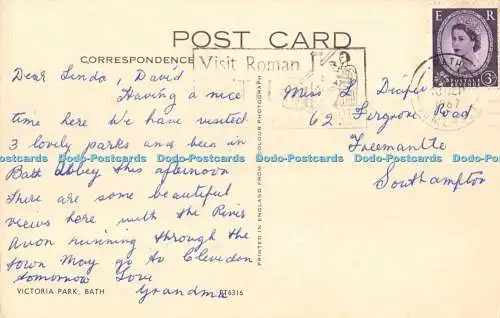 POST CARD
CORRESPONDENCE
Visit Roman
E R
POSTAGE
REVENUE
3D
BATH
67
Dear Linda, David
Having a nice
time here We have visited
3 lovely parks and been in
Bath Abbey this afternoon
There are some beautiful
views here with the River
Avon running through the
town May go to Clevedon
tomorrow Love
Grandma
Miss L Diaper
62 Fergson Road
Freemantle
Southampton
PRINTED IN ENGLAND FROM A COLOUR PHOTOGRAPH
VICTORIA PARK, BATH
PT6316
D-Postcards
D-Postcards
D-Postcards
D-Postcards